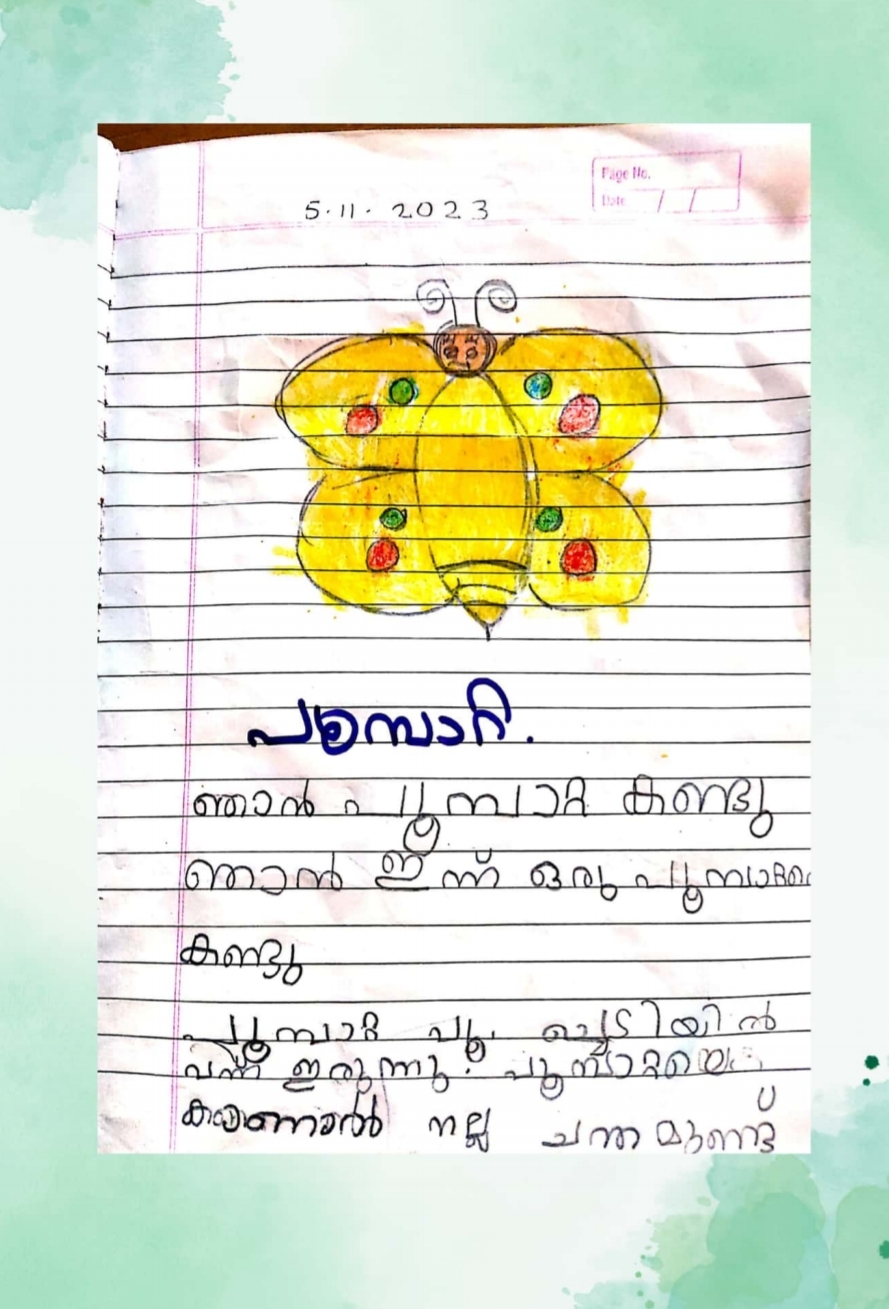 Page No.
Date / /
5.11.2023
ഞാൻ പൂമ്പാറ്റ കണ്ടു
ഞാൻ ഇന്ന് ഒരു
കണ്ടു
പൂമ്പാറ്റ പൂ. ചെടിയിൽ
വന്ന് ഇരുന്നു. പൂമ്പാറ്റയെ
കാണാൻ നല്ല ചന്തമുണ്ട്